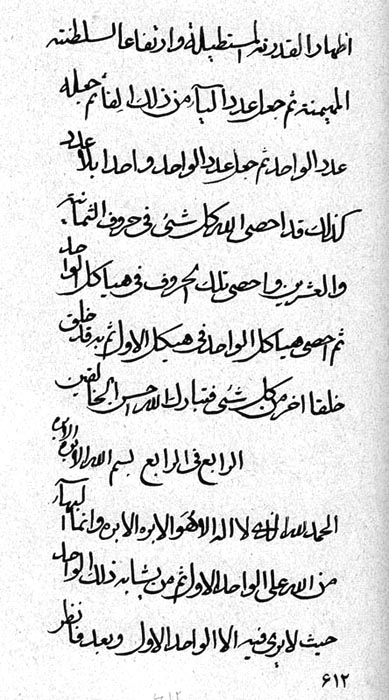 اظهارا لقدرته المستطیلة و ارتفاعا لسلطنته
المهیمنة ثم جعل عدد الیآء من ذلک الفا ثم جعله
عدد الواحد ثم جعل عدد الواحد واحدا بلا عدد
کذلک قد احصی الله کل شیئ فی حروف الثمانیة
والعشرین و احصی تلک الحروف فی هیاکل الواحد
ثم احصی هیاکل الواحد فی هیکل الاول ثم به قد خلق
خلقا اخر من کل شیئ فتبارک الله احسن الخالقین
الرابع فی الرابع بسم الله الابره الابره
الحمد لله الذی لا اله الا هو الابره الابره و انما البهآء
من الله علی الواحد الاول ثم من یشابه ذلک الواحد
حیث لا یری فیه الا الواحد الاول و بعد فانظر
۶۱۲